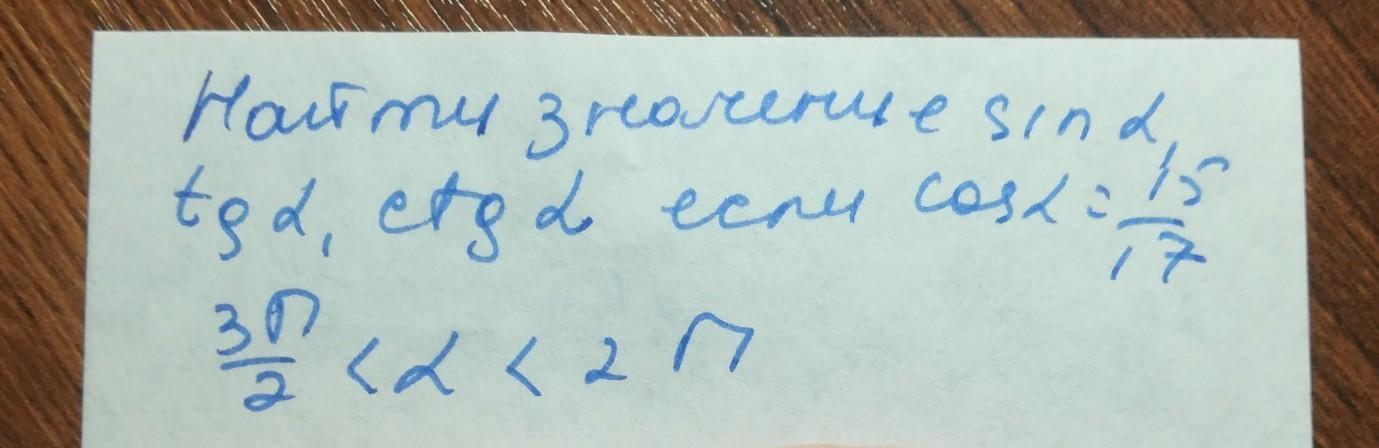 Найти значение sin α,
tg α, ctg α если cos α = 15/17
3π/2 < α < 2π